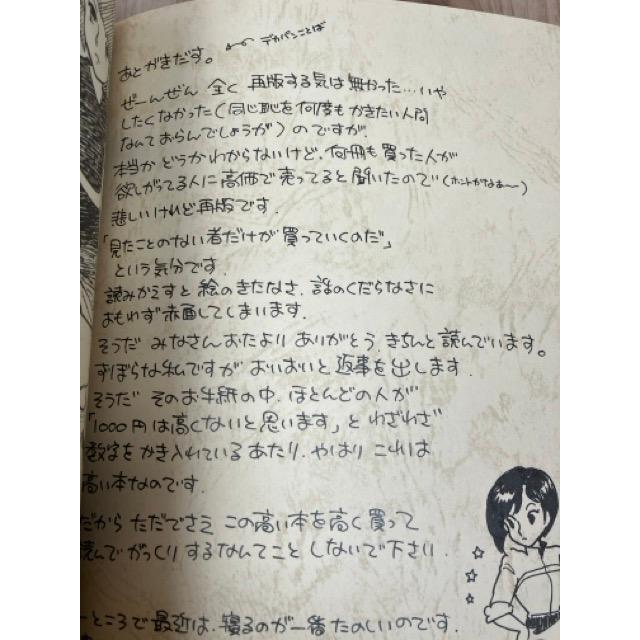 あとがきだす。 デカパンことば
ぜーんぜん 全く 再版する気は無かった…いや
したくなかった(同じ恥を何度もかきたい人間
なんておらんでしょうが)のですが、
本当かどうかわからないけど、何冊も買った人が
欲しがってる人に高価で売ってると聞いたので(ホントかなぁ〜)
悲しいけれど再版です.
「見たことのない者だけが買っていくのだ」
という気分です.
読みかえすと絵のきたなさ、話のくだらなさに
おもわず赤面してしまいます.
そうだ みなさんおたより ありがとう きちんと読んでいます。
ずぼらな私ですが おいおいと返事を出します.
そうだ そのお手紙の中、ほとんどの人が
「1000円は高くないと思います」と わざわざ
数字をかき入れているあたり、やはり これは
高い本なのです.
だから ただでさえ この高い本を高く買って
読んで がっくりするなんてこと しないで下さい.
ーところで最近は、寝るのが一番たのしいのです.